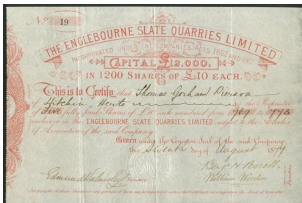 No. 19
THE ENGLEBOURNE SLATE QUARRIES LIMITED
INCORPORATED UNDER THE COMPANIES ACTS
CAPITAL £12,000.
IN 1200 SHARES OF £10 EACH.
This is to Certify that Thomas Gorham
Hitchin Herts is the Proprietor
of Five fully paid Shares of £10 each numbered from
in THE ENGLEBOURNE SLATE QUARRIES LIMITED subject to the Articles
of Association of the said Company.
Given under the Common Seal of the said Company
the day of August 1879